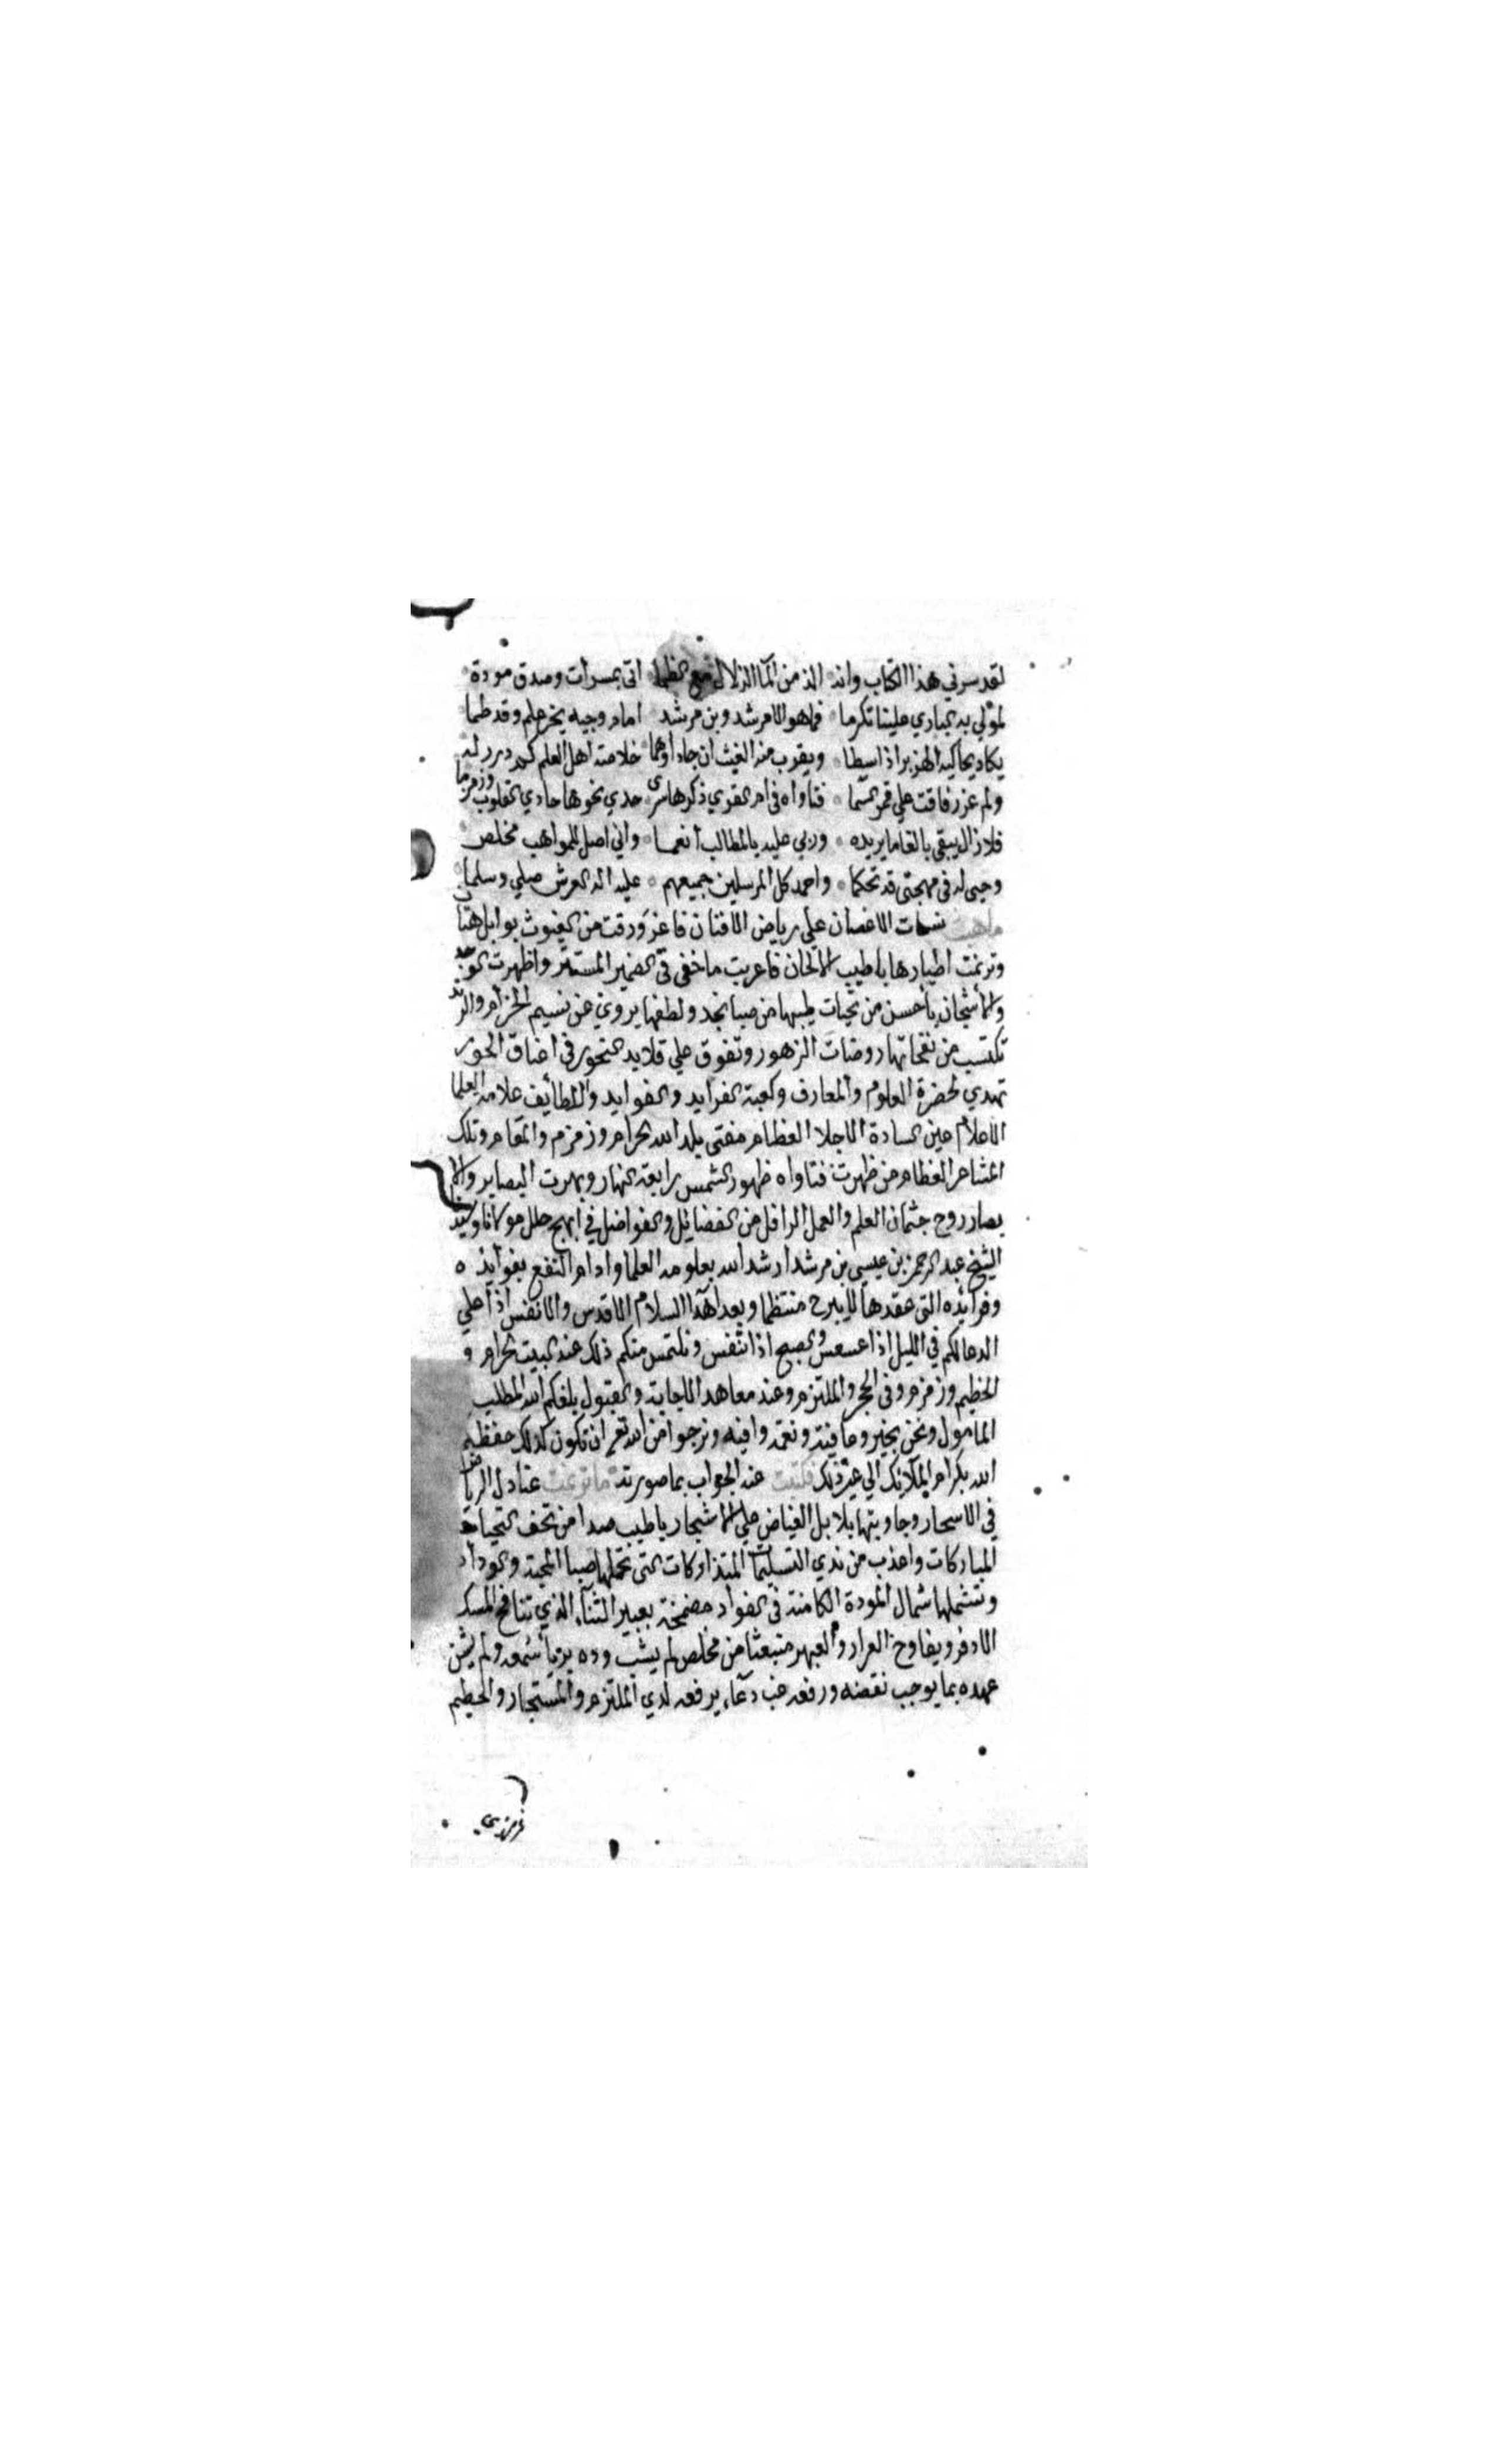 لقد سرني هذا الكتاب وانه الذ من المآ الزلال مع الظما اتى بمسرات وصدق مودة
لمولي به الباري علينا تكرما فما هو الا مرشد وبن مرشد امام وجيه بحر علم وقد طما
يكاد يحاكيه الهزبر اذا سطا ويقرب منه الغيث ان جاد او هما خلاصة اهل العلم كم درر له
ولم غرر فاقت علي قمر السما فتاواه في ام القري ذكرها سرى حدي نحوها حادي القلوب وزمزما
فلا زال يبقى بالغا ما يريده وربي عليه بالمطالب أنعما واني اصل للمواهب مخلص
وحبي له في مهجتي قد تحكما واحمد كل المرسلين جميعهم عليه اله العرش صلي وسلما
ما هبت نسمات الاغصان علي رياض الافنان فاغرورقت من الغيوث بوابل هتان
وترنمت اطيارها باطيب الالحان فاعربت ما خفي في الضمير المستتر واظهرت الوجد
والأشجان بأحسن من تحيات طيبها من صبا نجد ولطفها يروي عن نسيم الخزام والرند
تكتسب من نفحاتها روضات الزهور وتفوق علي قلايد النحور في اعناق الحور
تهدي لحضرة العلوم والمعارف وكعبة الفرايد والفوايد واللطائف علامة العلما
الاعلام عين السادة الاجلا العظام مفتي بلد الله الحرام وزمزم والمقام وتلك
المشاعر العظام من ظهرت فتاواه ظهور الشمس رابعة النهار وبهرت البصاير والا
بصار روح جثمان العلم والعمل الرافل من الفضائل والفواضل في ابهج حلل مولانا وسيد
الشيخ عبد الرحمن بن عيسي بن مرشد ارشد الله بعلومه العلما وادام النفع بفوايده
وفرائده التي عقدها لا يبرح منتظما وبعد اهدا السلام الاقدس والانفس اذا علي
الدعا لكم في الليل اذا عسعس والصبح اذا تنفس ونلتمس منكم ذلك عند البيت الحرام و
الحطيم وزمزم وفي الحجر والملتزم وعند معاهد الاجابة والقبول بلغكم الله المطلب
المامول ونحن بخير وعافية ونعمة وافيه ونرجوا من الله تعم ان تكون كذلك حفظكم
الله بكرام الملائك الي غير ذلك فكتبت عند الجواب بما صورته ما ترنمت عنادل الرياض
في الاسحار وجاوبتها بلابل الغياض علي الاشجار باطيب صدا من تحف التحيات
المباركات واعذب من ندي التسليمات المتداركات التي تحملها صبا المحبة والوداد
وتشملها شمال المودة الكامنة في الفواد مضمخة بعبير الثنآء الذي تنافح المسك
الاذفر ويفاوح العرار والعبهر منبعثا من مخلص لم يشب وده بريأ سمعه ولم يشن
عهده بما يوجب نقضه ورفعه غب دعآء يرفعه لدي الملتزم والمستجار والحطيم